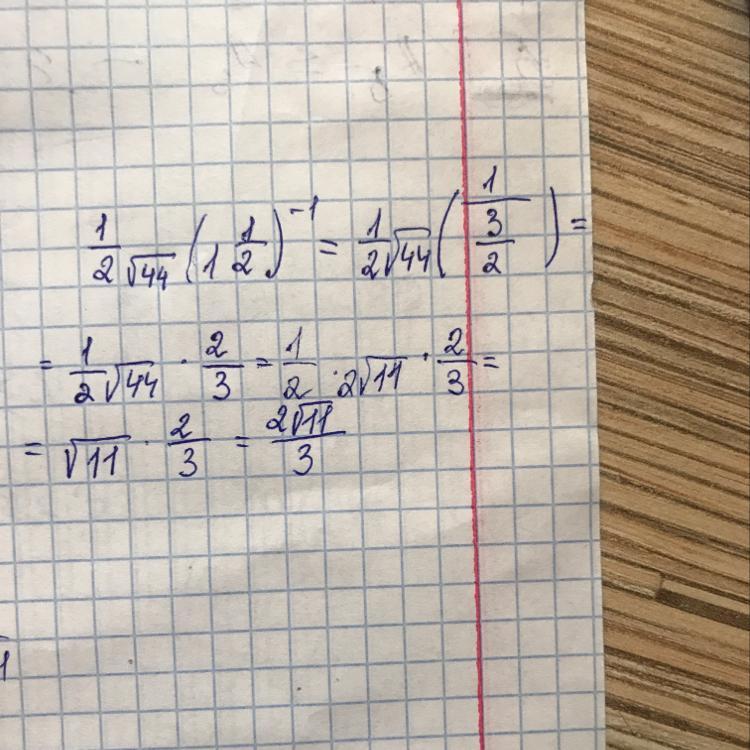 1/2 √44 (1 1/2)^-1 = 1/2 √44 (1/(3/2)) =
= 1/2 √44 · 2/3 = 1/2 · 2√11 · 2/3 =
= √11 · 2/3 = 2√11/3